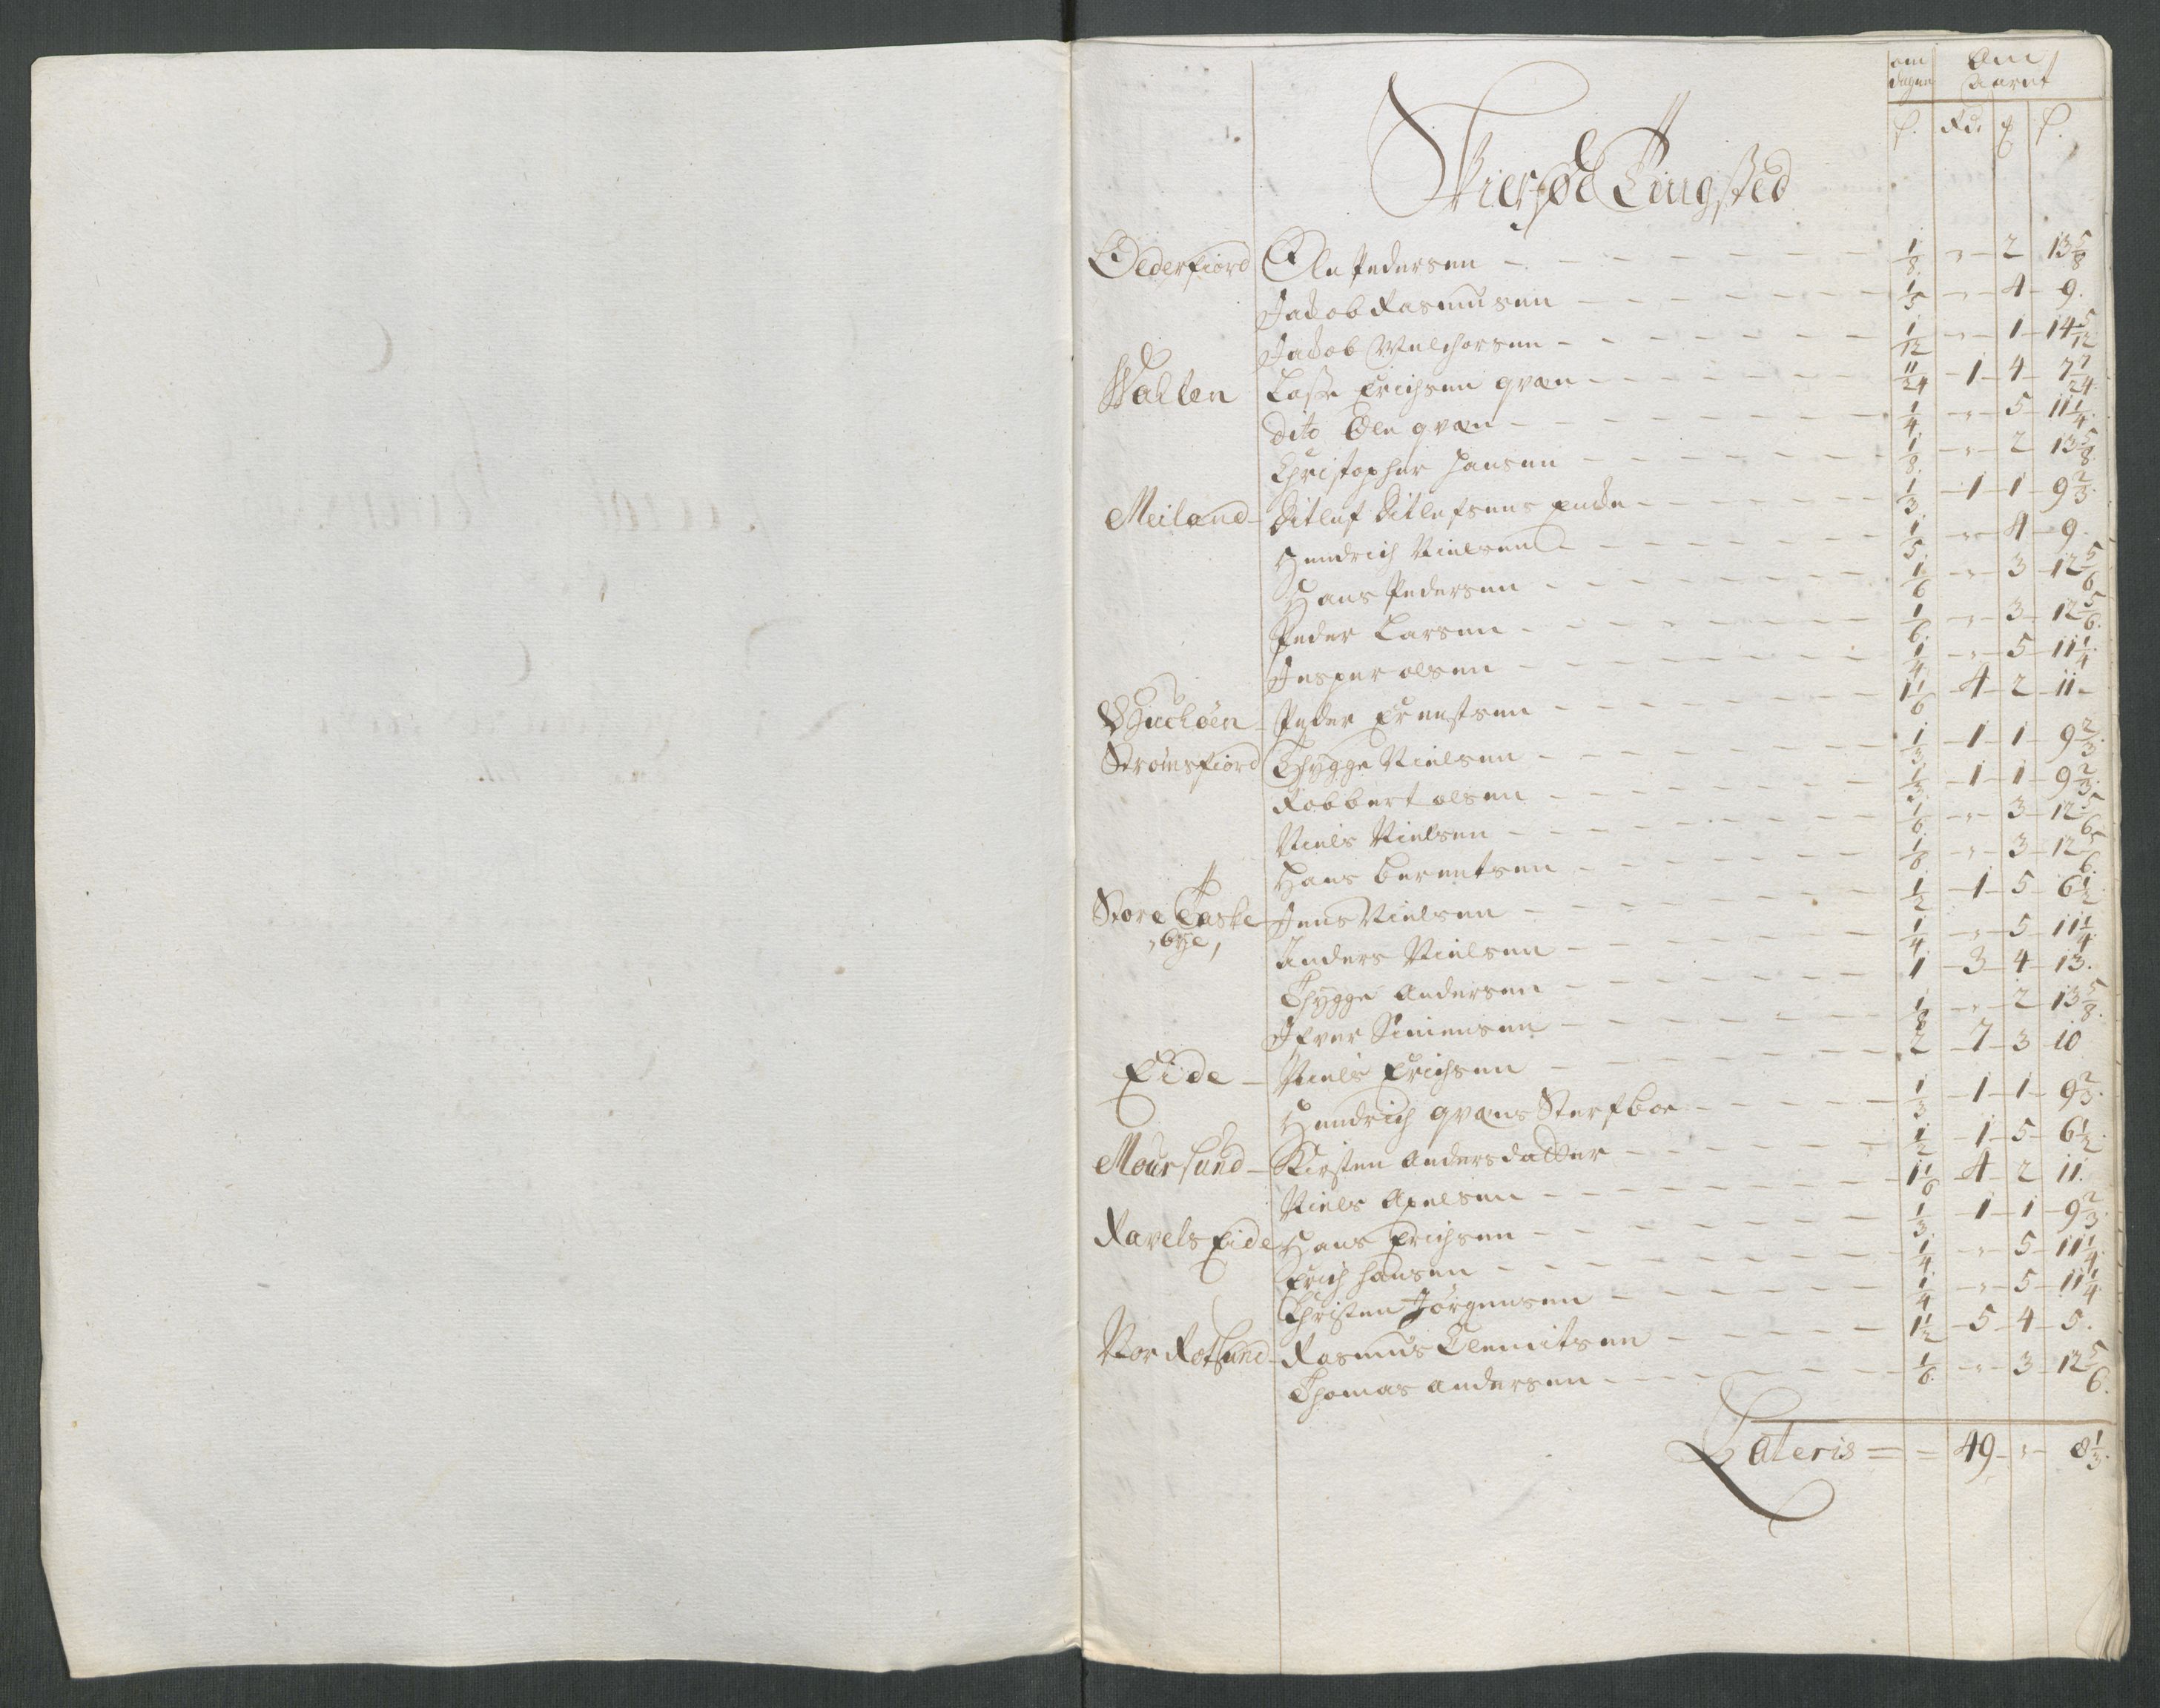 om Om
dagen Aaret
ß. Rd. ȣ ß.
Skierføe Tingsted
Olderfiord Ole Pedersen - 1/8 - „ - 2 - 13 5/8
Jacob Rasmusen - 1/5 - „ - 4 - 9.
Jacob Melchersen - 1/12 - „ - 1 - 14 5/12
Walten Lasse Erichsen qvæn - 11/24 - 1 - 4 - 7 7/24.
Dito Ole qvæn - 1/4 - „ - 5 - 11 1/4.
Christopher Hansen - 1/8. - „ - 2 - 13 5/8.
Meiland - Ditlef Ditlefsens Encke - 1/3 - 1 - 1 - 9 2/3.
Hendrich Nielsen - 1/5 - „ - 4 - 9.
Hans Pedersen - 1/6 - „ - 3 - 12 5/6
Peder Larsen - 1/6 - „ - 3 - 12 5/6.
Jesper olsen - 1/4 - „ - 5 - 11 1/4
Peder Erentsen - 1 1/6 - 4 - 2 - 11 -
Strømsfiord Thygge Nielsen - 1/3 - 1 - 1 - 9 2/3.
Robbert olsen - 1/3 - 1 - 1 - 9 2/3.
Niels Nielsen - 1/6 - „ - 3 - 12 5/6
Hans Berentsen - 1/6 - „ - 3 - 12 5/6.
Store Taske Jens Nielsen - 1/2 - 1 - 5 - 6 1/2
„bye, Anders Nielsen - 1/4 - „ - 5 - 11 1/4.
Thygge Andersen - 1 - 3 - 4 - 13.
Ifver Simensen - 1/8 - „ - 2 - 13 5/8.
Eide - Niels Erichsen - 2 - 7 - 3 - 10
Hendrich qvæns Sterfboe - 1/3 - 1 - 1 - 9 2/3.
Moursund - Kirsten Andersdatter - 1/2 - 1 - 5 - 6 1/2.
Niels Axelsen - 1 1/6 - 4 - 2 11.
Ravels Eide Hans Erichsen - 1/3 - 1 - 1 - 9 2/3.
Erich Hansen - 1/4 - „ - 5 - 11 1/4.
Christen Jørgensen - 1/4 - „ - 5 - 11 1/4.
Nor Rotsund - Rasmus Clemitsen - 1 1/2 - 5 - 4 - 5.
Thomas Andersen - 1/6. - „ - 3 - 12 5/6.
Lateris = = 49 - „ - 8 1/3.